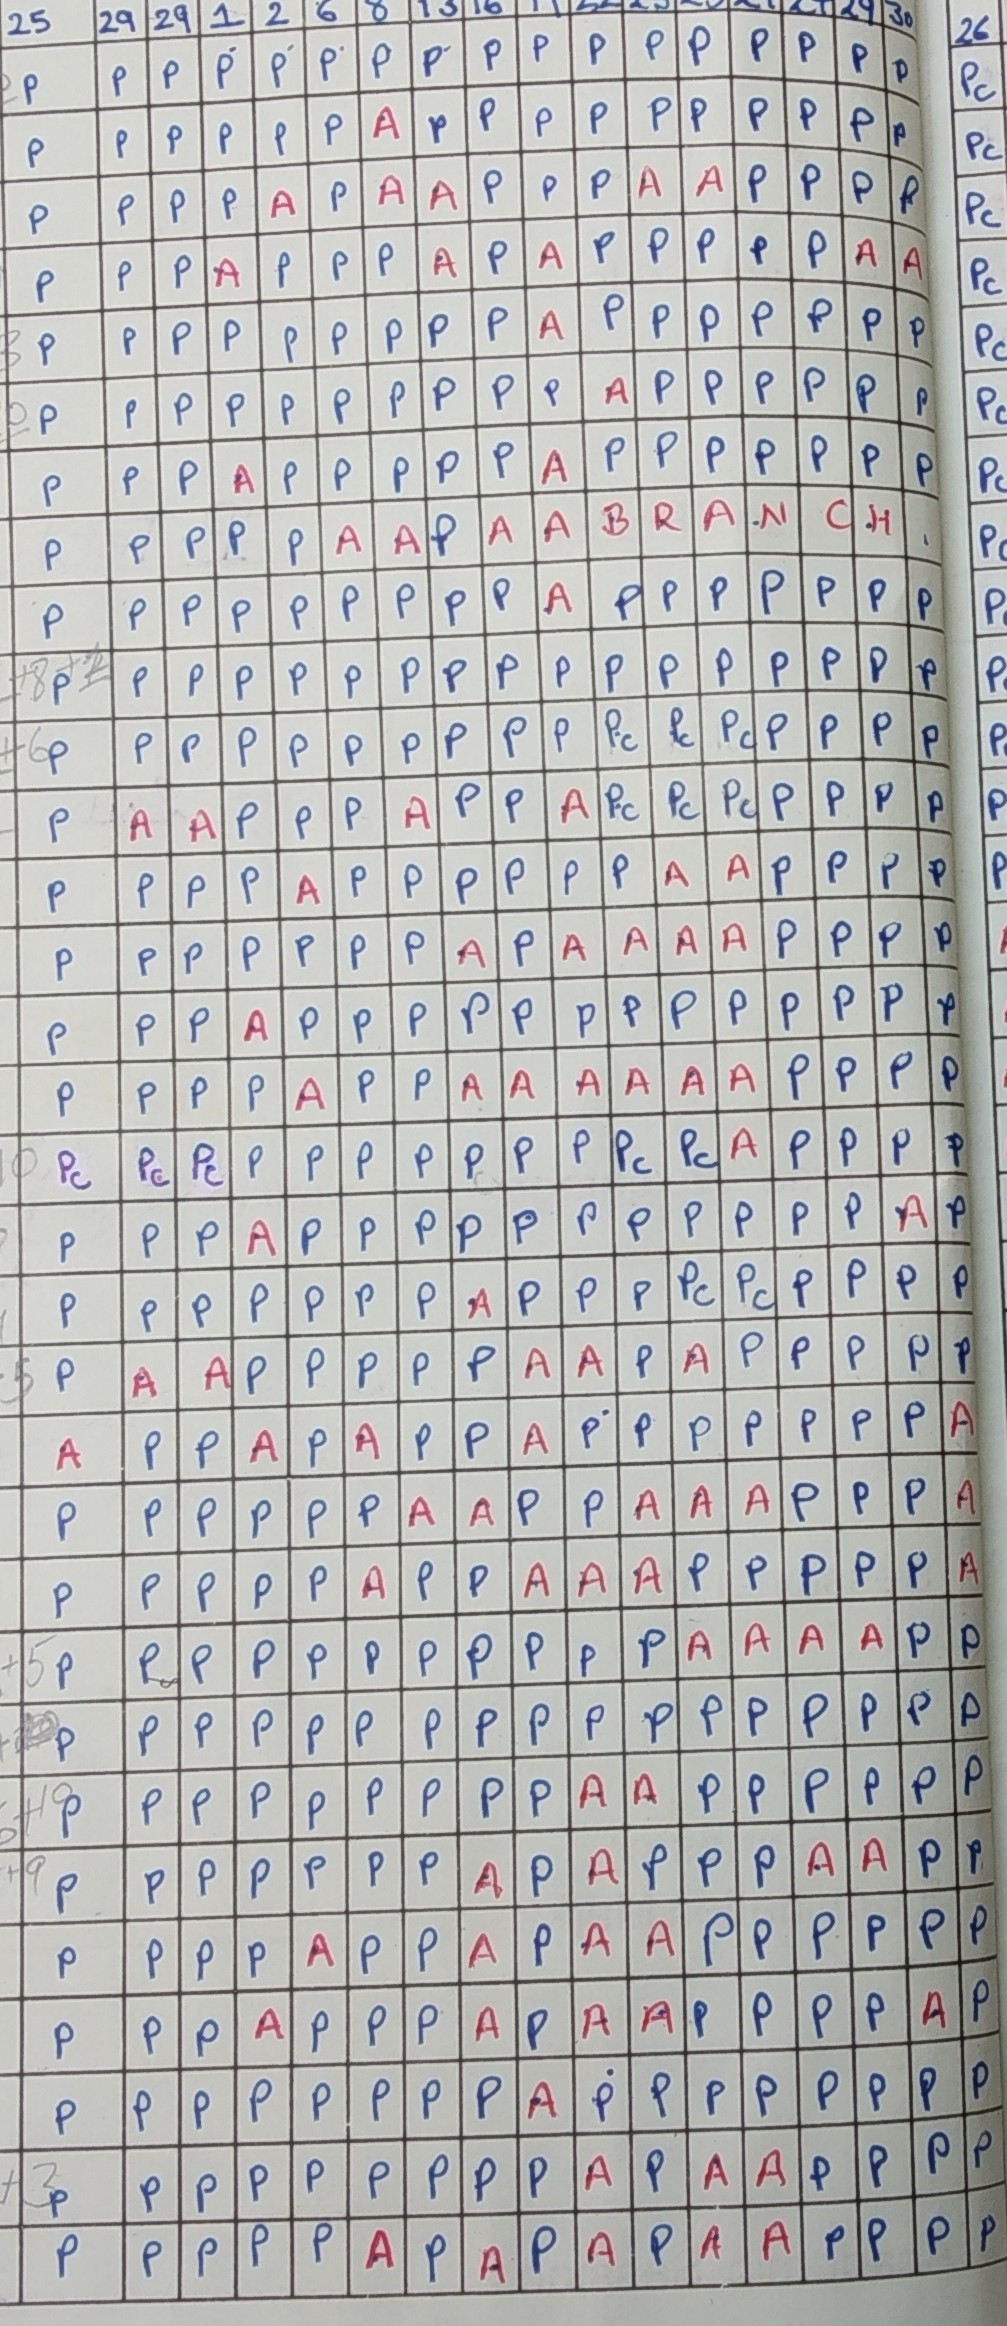 25 29 29 1 2 6 8 13 16 29 30 26
P P P P P P P P P P P P P P P P P Pc
P P P P P P A P P P P P P P P P P Pc
P P P P A P A A P P P A A P P P P Pc
P P P A P P P A P A P P P P P A A Pc
P P P P P P P P P A P P P P P P P Pc
P P P P P P P P P P A P P P P P P Pc
P P P A P P P P P A P P P P P P P Pc
P P P P P A A P A A B R A N C H . Pc
P P P P P P P P P A P P P P P P P P
+8 P P P P P P P P P P P P P P P P P P
+6 P P P P P P P P P P Pc Pc Pc P P P P P
P A A P P P A P P A Pc Pc Pc P P P P P
P P P P A P P P P P P A A P P P P P
P P P P P P P A P A A A A P P P P
P P P A P P P P P P P P P P P P P
P P P P A P P A A A A A A P P P P
Pc Pc Pc P P P P P P P Pc Pc A P P P P
P P P A P P P P P P P P P P P A P
P P P P P P P A P P P Pc Pc P P P P
5 P A A P P P P P A A P A P P P P P
A P P A P A P P A P P P P P P P A
P P P P P P A A P P A A A P P P A
P P P P P A P P A A A P P P P P A
+5 P P P P P P P P P P P A A A A P P
P P P P P P P P P P P P P P P P P
P P P P P P P P P A A P P P P P P
+9 P P P P P P P A P A P P P A A P P
P P P P A P P A P A A P P P P P P
P P P A P P P A P A A P P P P A P
P P P P P P P P A P P P P P P P P
+3 P P P P P P P P P A P A A P P P P
P P P P P A P A P A P A A P P P P